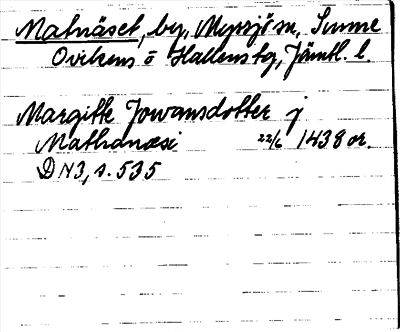 Matnäset, by, Myssjö sn, Sunne
Ovikens o Hallens tg, Jämtl. l.
Margitte Jowansdotter j
Mathanæsi 22/6 1438 or.
DN3, s. 535